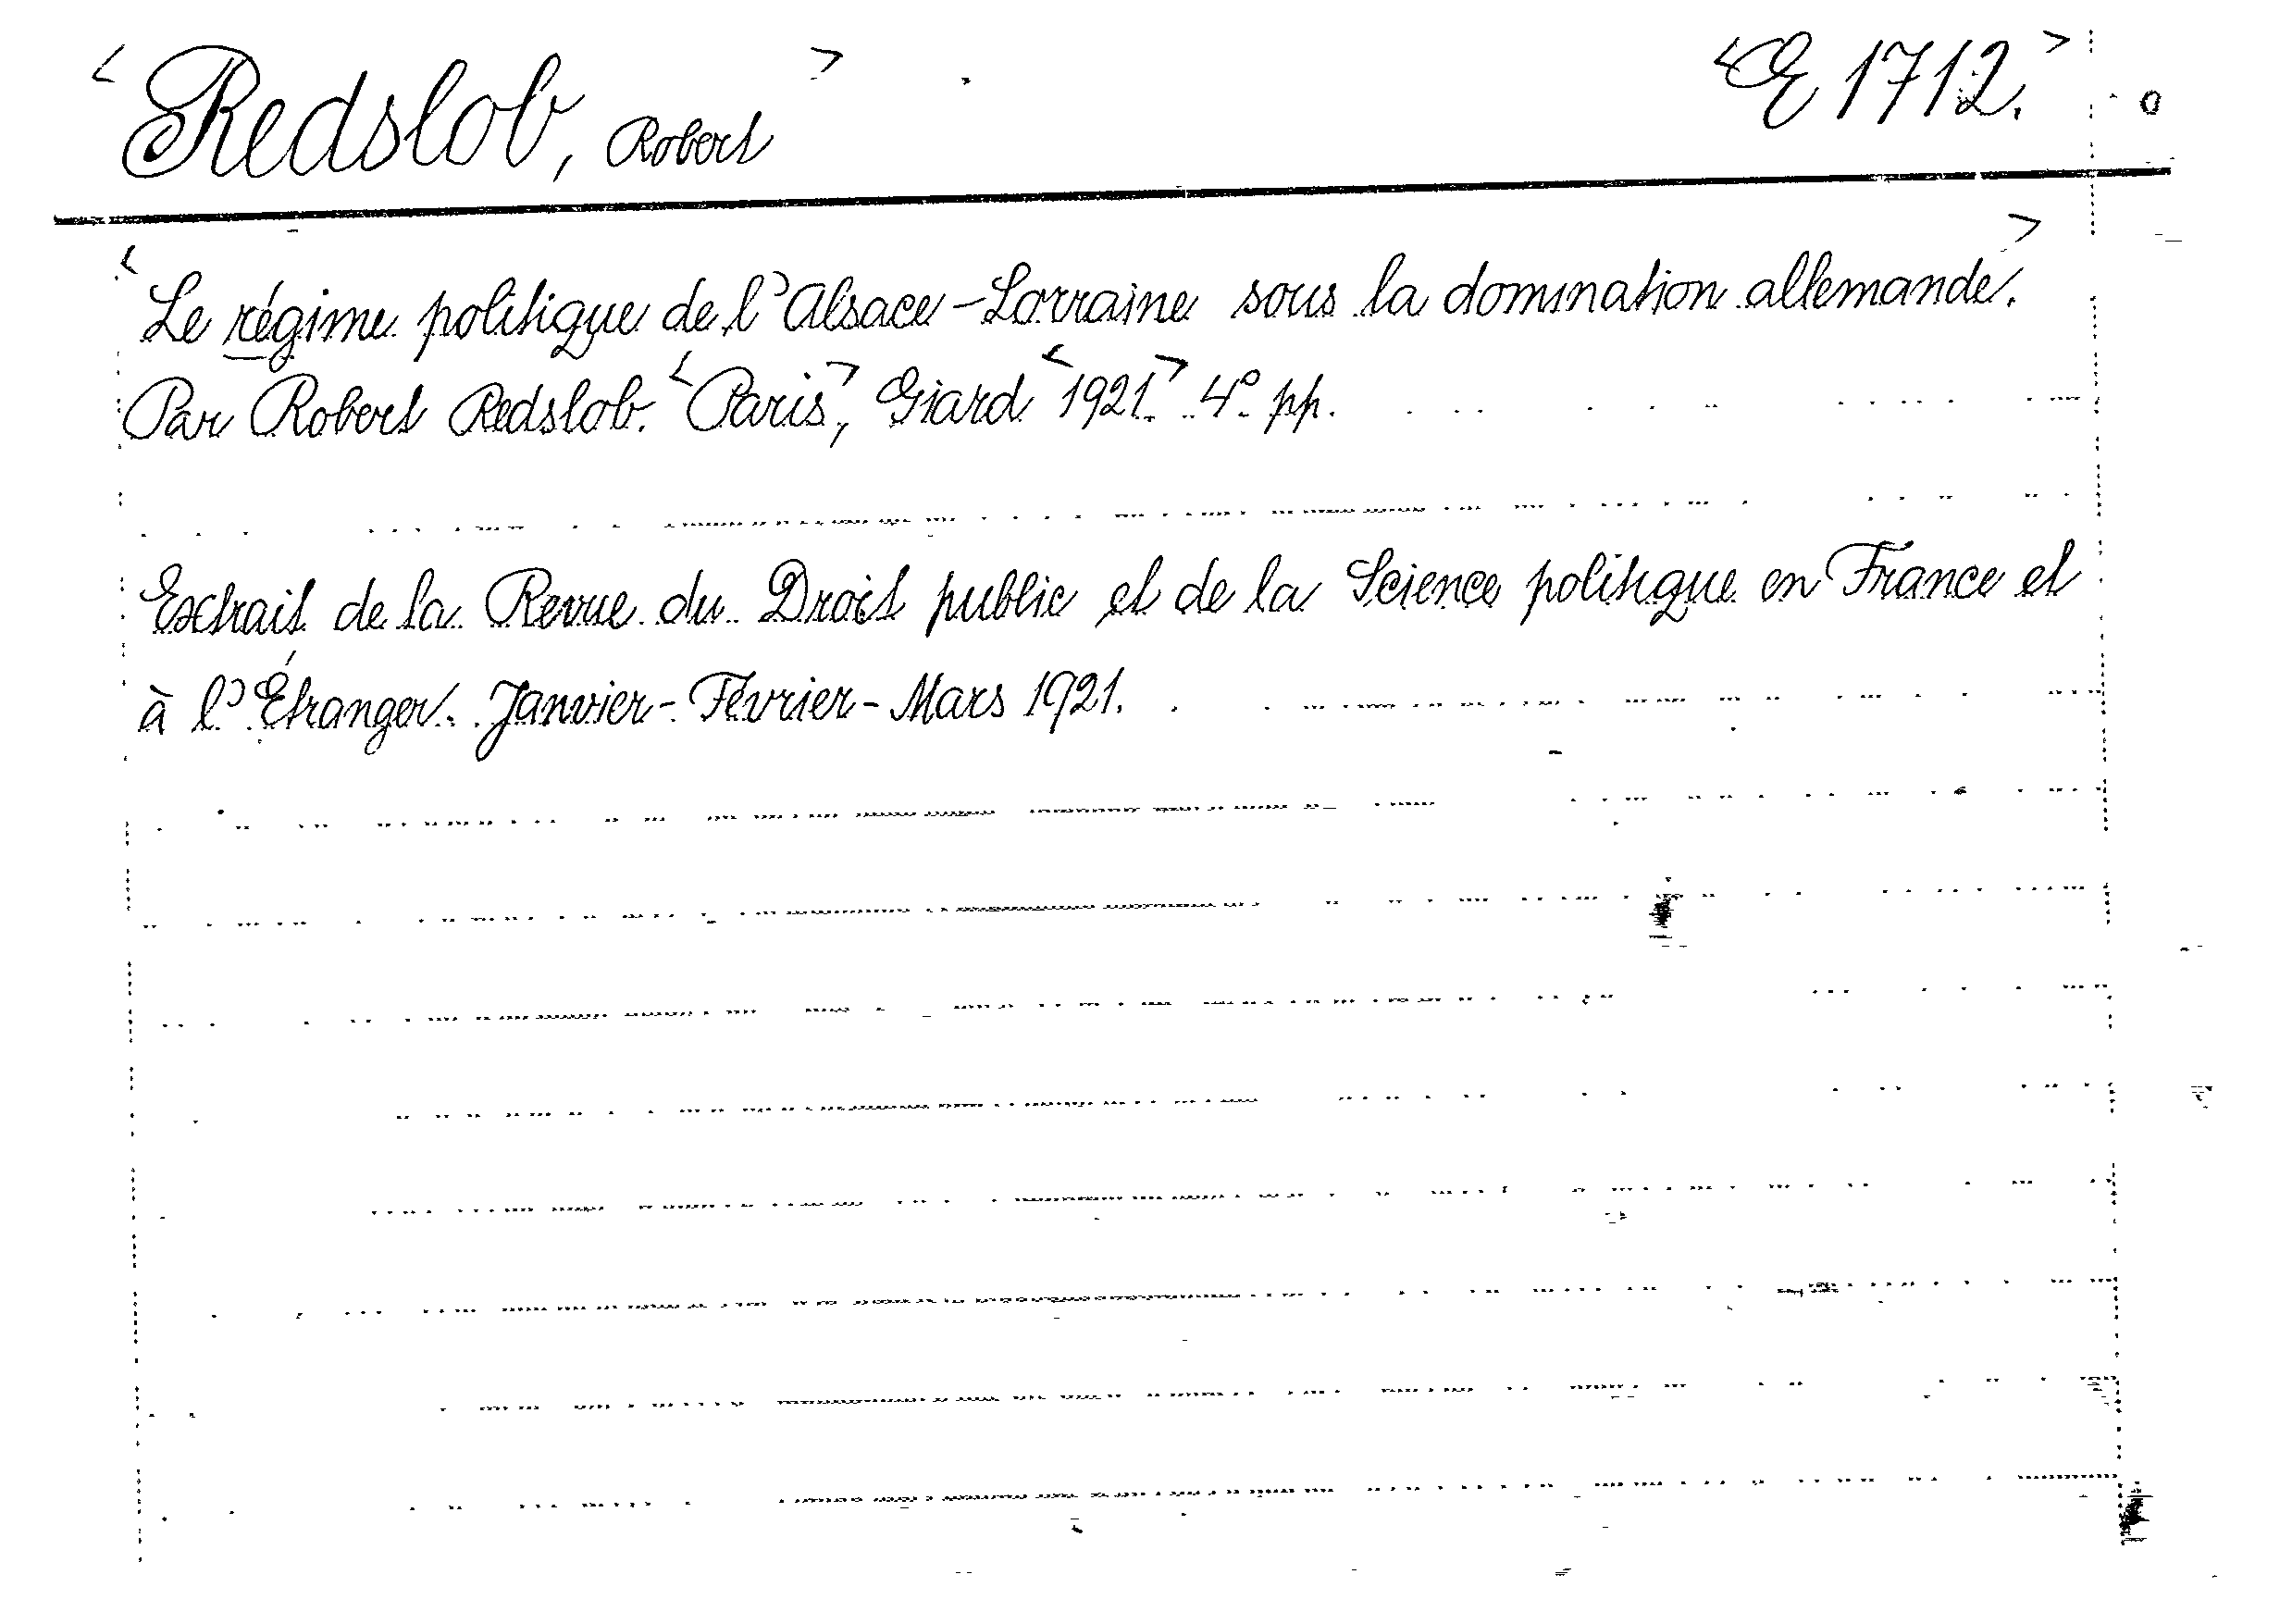 <Redslob, Robert> <E 1712.>
<Le régime politique de l'Alsace-Lorraine sous la domination allemande.>
Par Robert Redslob. <Paris>, Giard <1921.> 4° pp.
Extrait de la Revue du Droit public et de la Science politique en France et
à l'Étranger. Janvier-Février-Mars 1921.